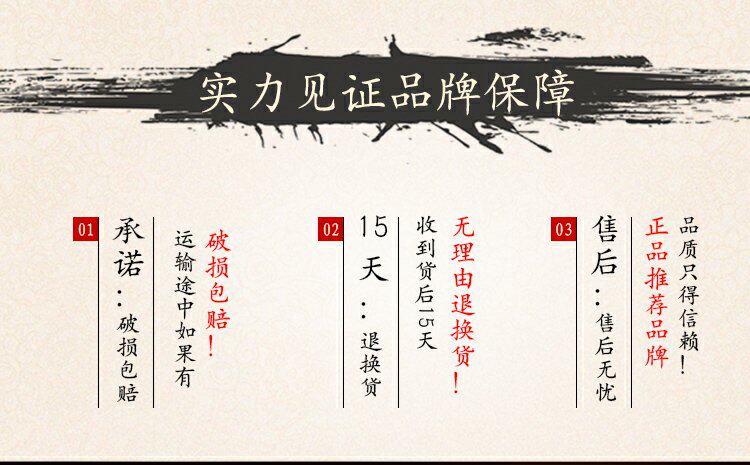 实力见证品牌保障
01
承诺：破损包赔
运输途中如果有
破损包赔！
02
15天：退换货
收到货后15天
无理由退换货！
03
售后：售后无忧
正品推荐品牌
品质只得信赖！